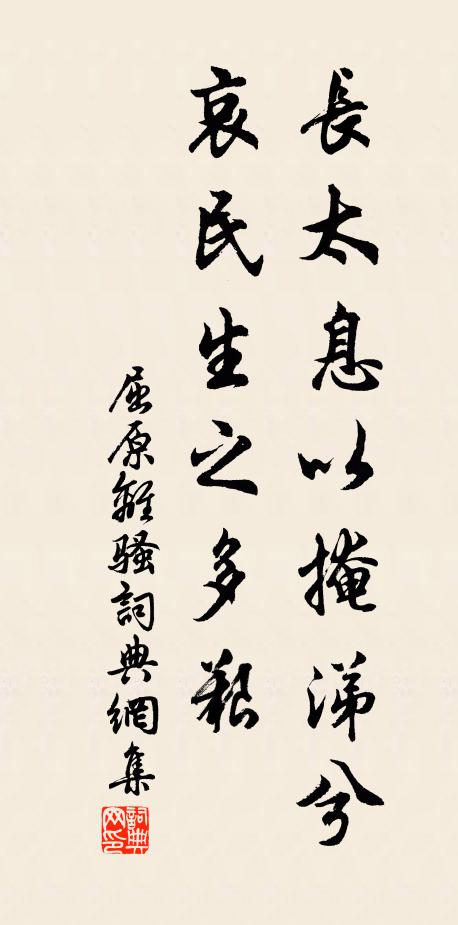 長太息以掩涕兮
哀民生之多艱
屈原離騷詞典網集
詞典網印